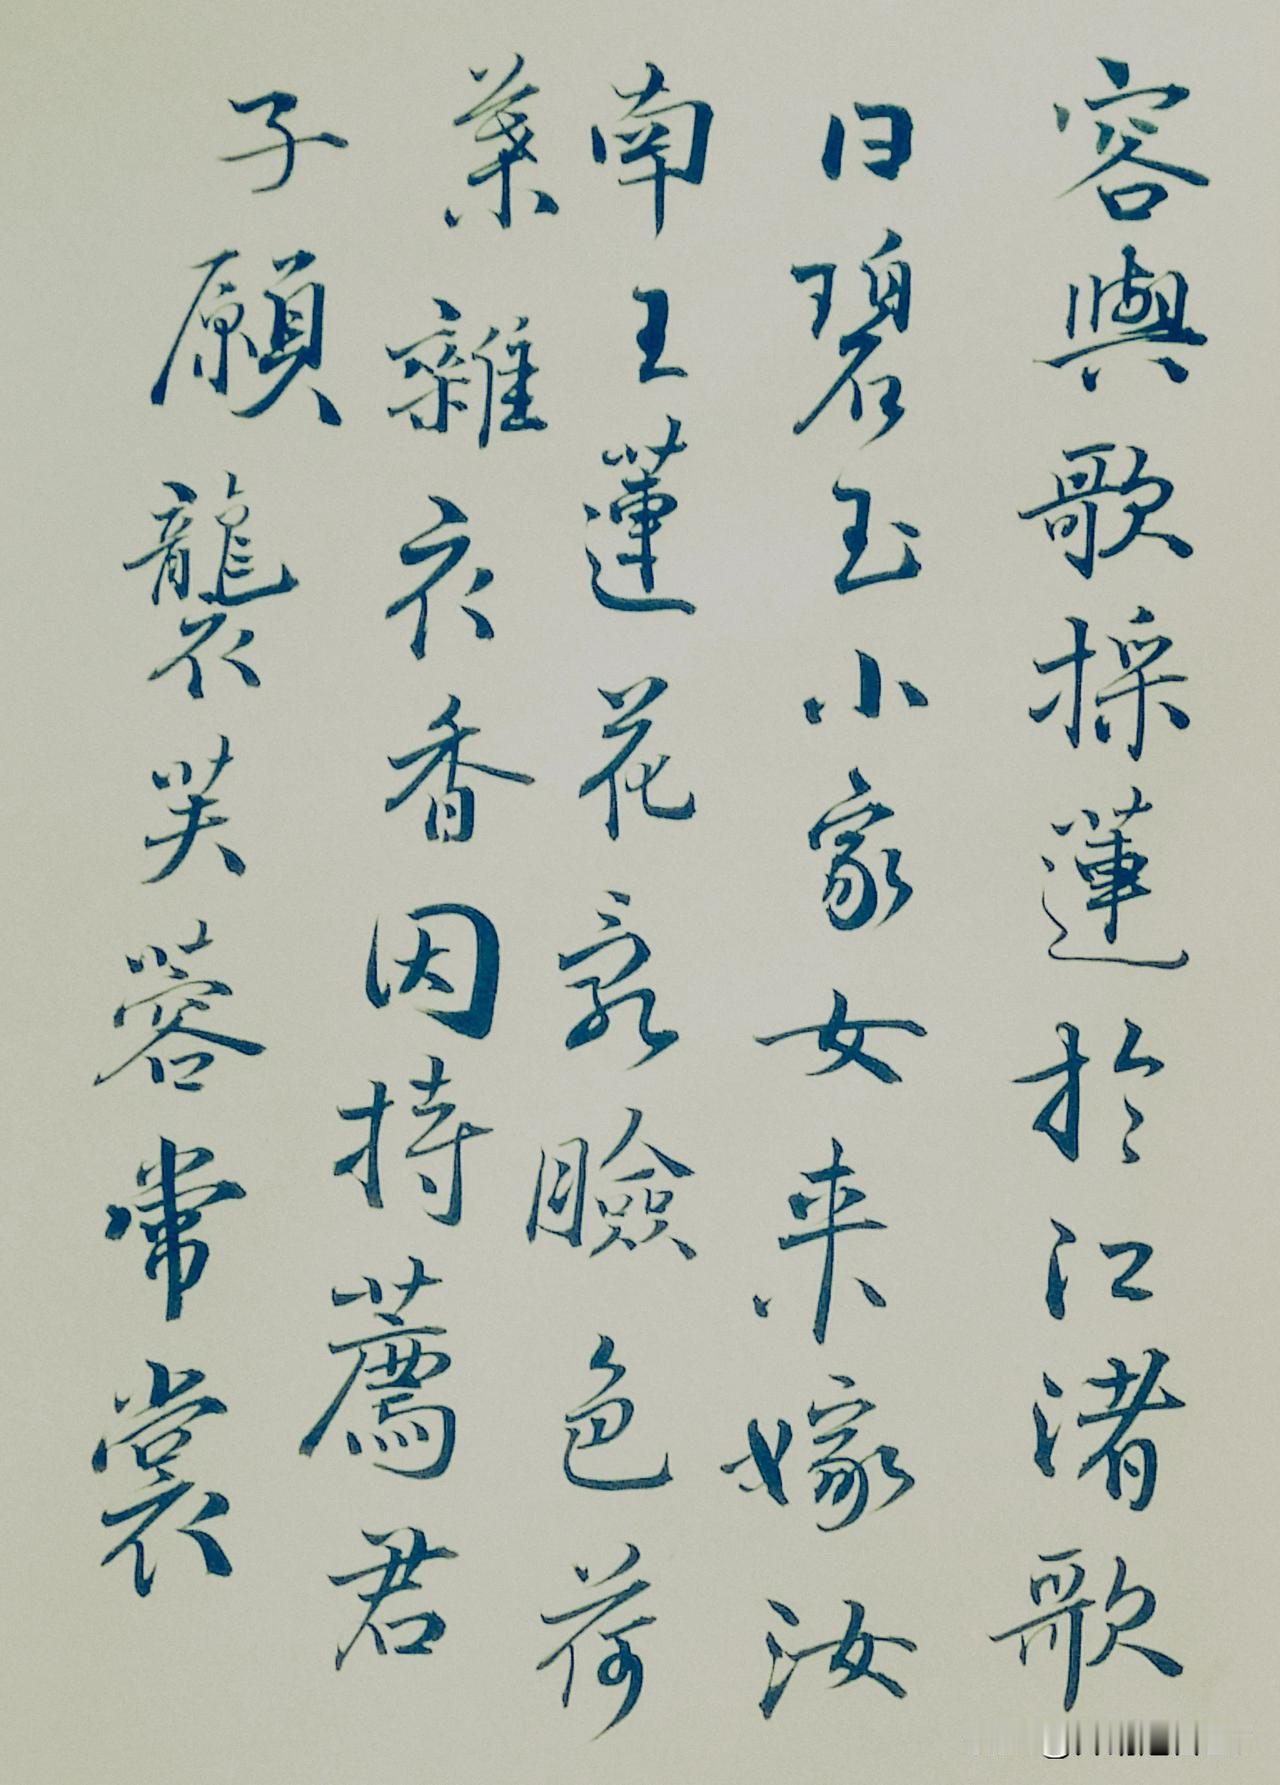 容與歌採蓮於江渚歌
曰碧玉小家女来嫁汝
南王蓮花乱臉色荷
葉雜衣香因持薦君
子願襲芙蓉常裳